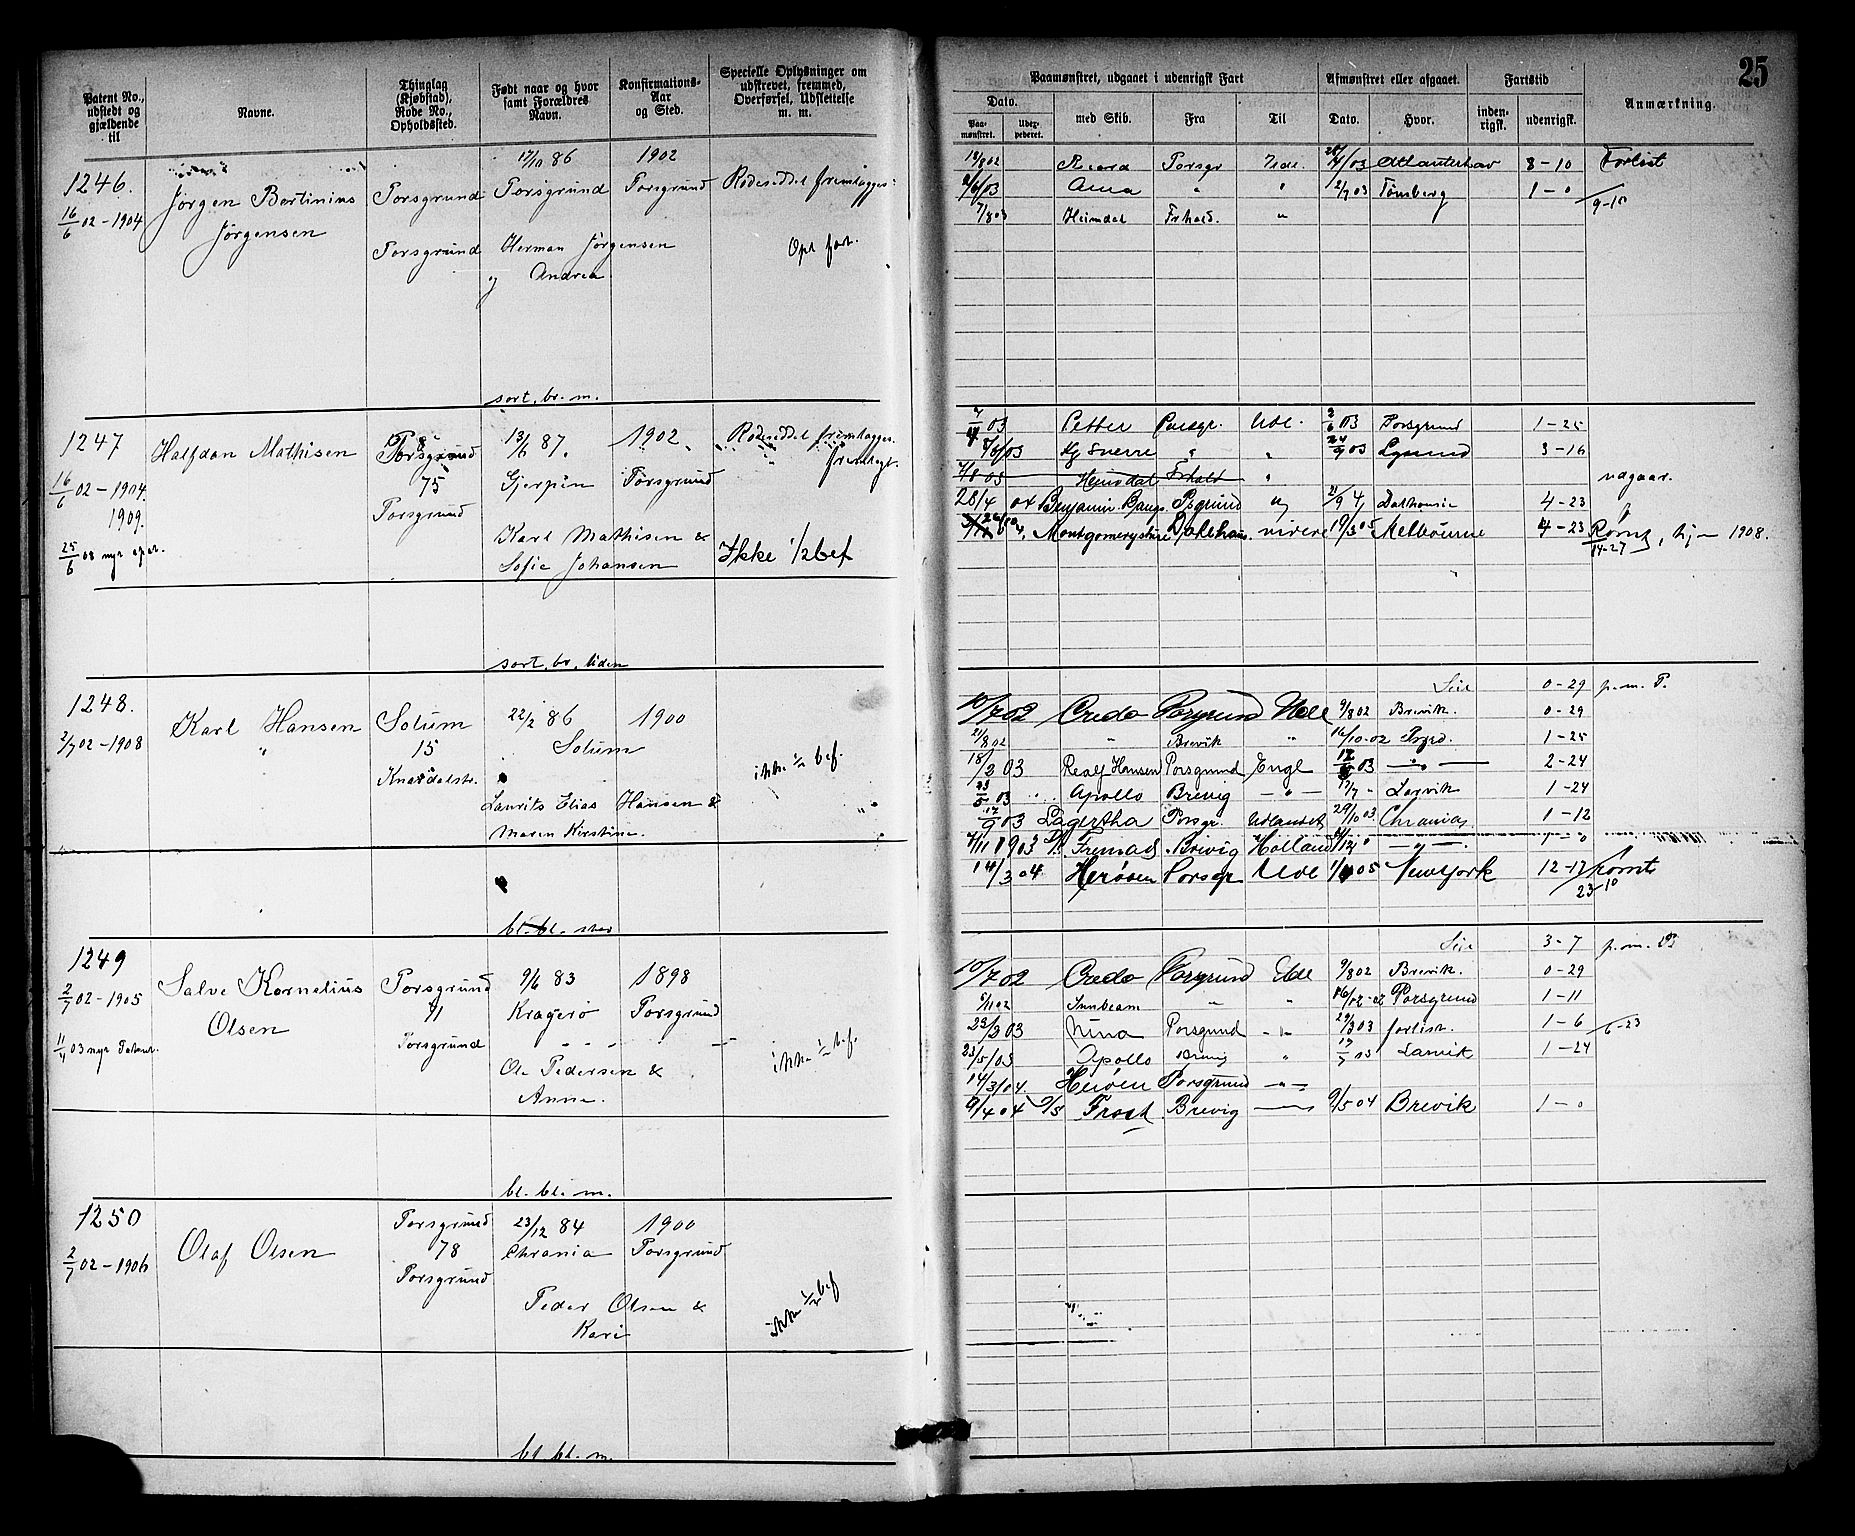 25
Patent No.,
udstedt og
gjældende
til
Navne.
Thinglag
(Kjøbstad),
Rode No.,
Opholdssted.
Født naar og hvor
samt Forældres
Navn.
Konfirmations-
Aar
og Sted.
Specielle Oplysninger om
udskrevet, fremmed,
Overførsel, Udslettelse
m. m.
1246.
16/6 02-1904
Jørgen Bertinius
Jørgensen
Porsgrund
Porsgrund
17/10 86
Porsgrund
Herman Jørgensen
og Andrea
1902
Porsgrund
Rodeseddel fremlagges
Opt fart.
sort, br. m.
1247
16/6 02-1904.
1909.
25/6 08 nyt
Halfdan Mathisen
Porsgrund
75
Porsgrund
13/6 87.
Gjerpen
Karl Mathisen &
Sofie Johansen
1902
Porsgrund
Rodeseddel fremlagges.
fremlagt.
Ikke 1/2 bef
sort, br, liden
1248.
2/7 02-1908
Karl Hansen
Solum
15
Knardalstr.
22/2 86
Solum
Laurits Elias Hansen &
Maren Kirstine.
1900
ikke 1/2 bef.
bl. bl.
1249
2/7 02-1905
11/4 03 nyt Patent.
Salve Kornelius
Olsen
Porsgrund
71
Porsgrund
9/6 83
Kragerø
Ole Pedersen &
Anna.
1898
Porsgrund
ikke 1/2 bef.
bl. bl. m.
1250
2/7 02-1906
Olaf Olsen
Porsgrund
78
Porsgrund
23/12 84
Chrania
Peder Olsen &
Kari
1900
Porsgrund
ikke 1/2 bef
bl. bl. m.
Paamønstret, udgaaet i udenrigsk Fart
Afmønstret eller afgaaet.
Fartstid
Anmærkning.
Dato.
Paa-
mønstret.
Udex-
pederet.
med Skib.
Fra
Til
Dato.
Hvor.
inden-
rigsk.
udenrigsk.
18/8 02 Porsgr 03 Atlanterhav 8-10 Forlist
2/6 03 " " 2/7 03 Tønsberg 1-0
9-10
7/8 03 Heimdal Frhald. "
03 Petter Porsgr. Udl. 2/6 03 Porsgrund 1-25
6/03 Kg Sverre " " 24/9 03 3-16
7/8 03 Heimdal Frhald "
udgaar.
28/4 04 Benjamin Bangs Psgrund " 21/9 4 Dalhousie 4-23
Montgomeryshire 19/3 05 Melbourne 4-23 Rømt, hj 1908.
14-27
0-29 p.m. P.
10/7 02 Credo Porsgrund Udl 9/8 02 Brevik. 0-29
21/8 02 " Brevik " 16/10-02 1-25
18/3 03 Realf Hansen Porsgrund Engl 03 — " — 2-24
23/5 03 Apollo Brevig — " — 17/7 " Larvik 1-24
17/9 03 Lagertha Porsgr. Udlandet, 29/10 03 Chrania 1-12
/11 1903 Fremad Brevig Holland — " — 1-0
14/3 04 Herøen Porsgr Udl 05 NewYork 12-17 rømt
23-10
3-7 p.m. P
10/7 02 Credo Porsgrund Udl 9/8 02 Brevik. 0-29
5/11 02 Sunbeam " " Porsgrund 1-11
23/2 03 Nina Porsgrund " 29/3 03 forlist. 1-6
6-23
23/5/03 Apollo Brevig " 17/7 03 Larvik 1-24
14/3/04. Herøen Porsgrund — " —
9/4 04 9/5 Frost Brevig 9/5 04 Brevik 1-0